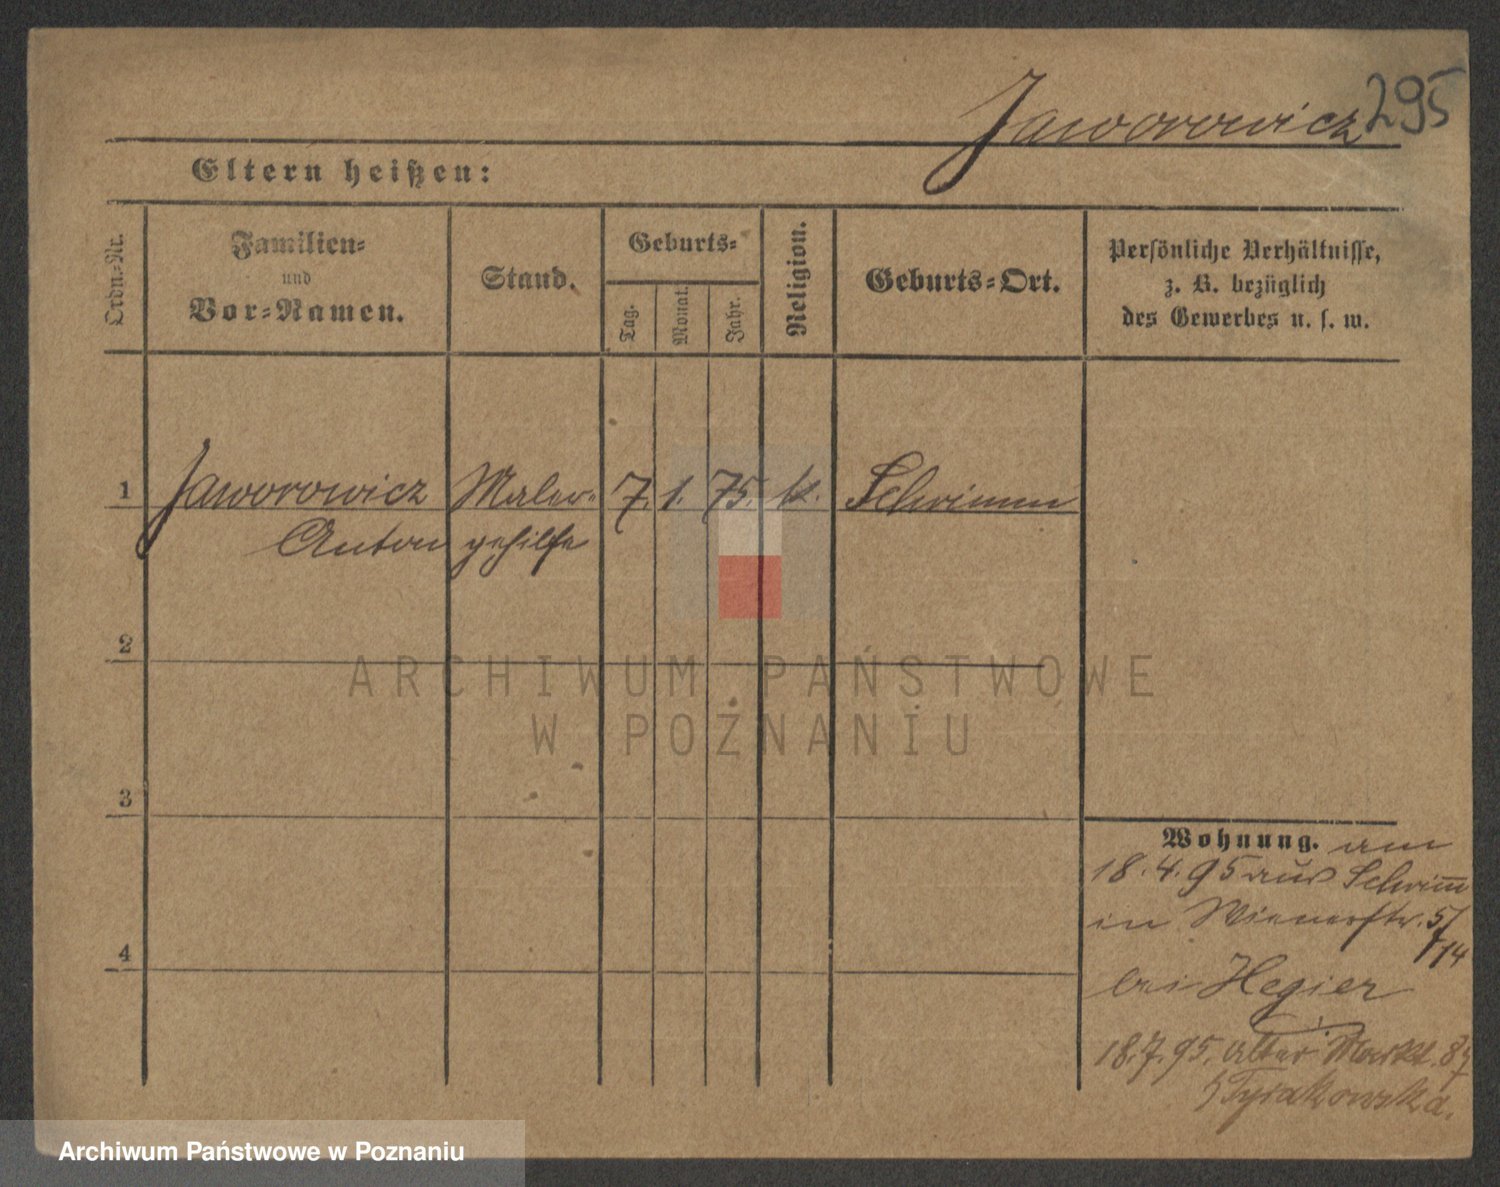 Jaworowicz 295
Eltern heißen:
Ordn.=Nr.
Familien=
und
Vor=Namen.
Stand.
Geburts=
Tag.
Monat.
Jahr.
Religion.
Geburts=Ort.
Persönliche Verhältnisse,
z. B. bezüglich
des Gewerbes u. s. w.
1 Jaworowicz Maler= 7. 1. 75. k. Schrimm
Anton gehilfe
2
3
4
Wohnung. am
18.4.95 aus Schrimm
in Wienerstr. 5/
14
bei Hegier
18.7.95. Alter Markt. 87
Tyrakowska.
ARCHIWUM PAŃSTWOWE
W POZNANIU
Archiwum Państwowe w Poznaniu